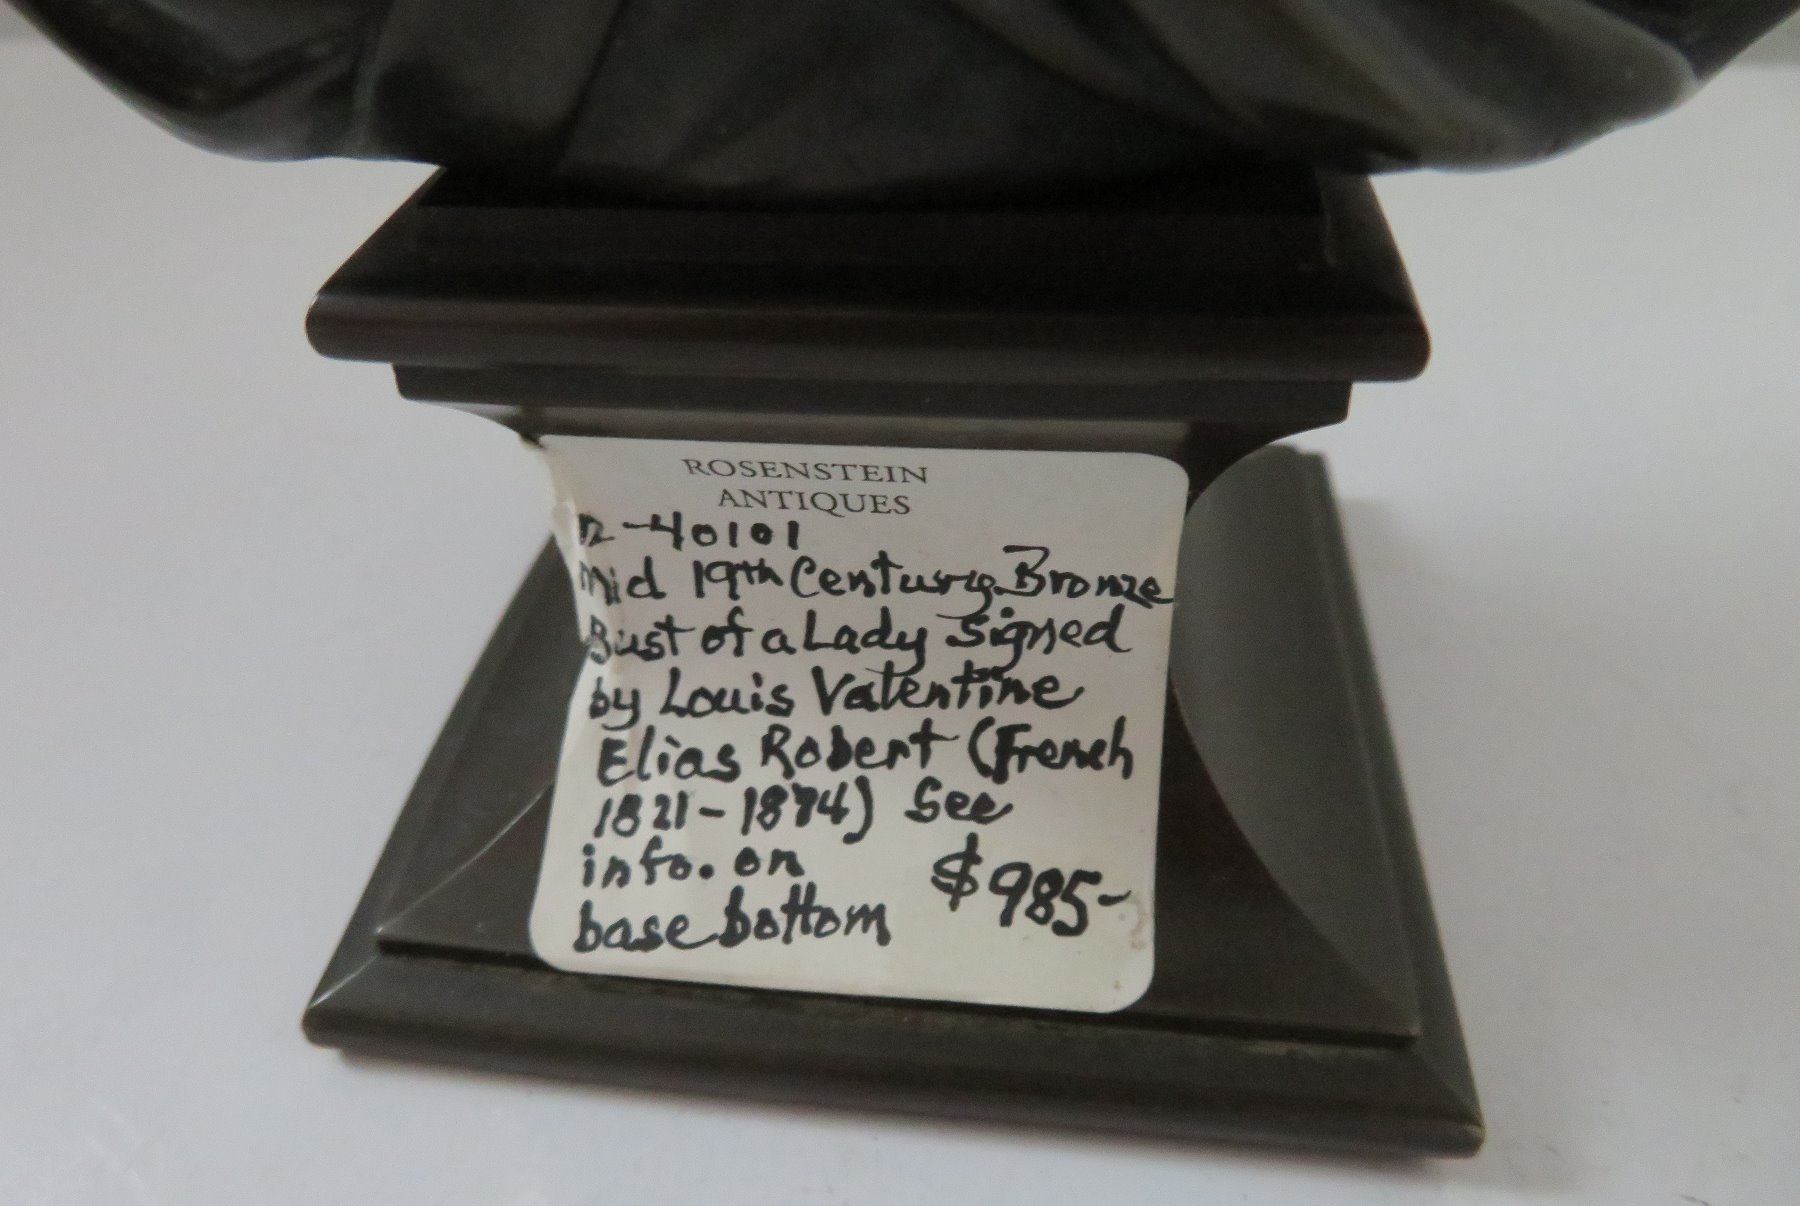 ROSENSTEIN
ANTIQUES
-40101
Mid 19th Century Bronze
Bust of a Lady Signed
by Louis Valentine
Elias Robert (French
1821-1874) See
info. on
base bottom $985-